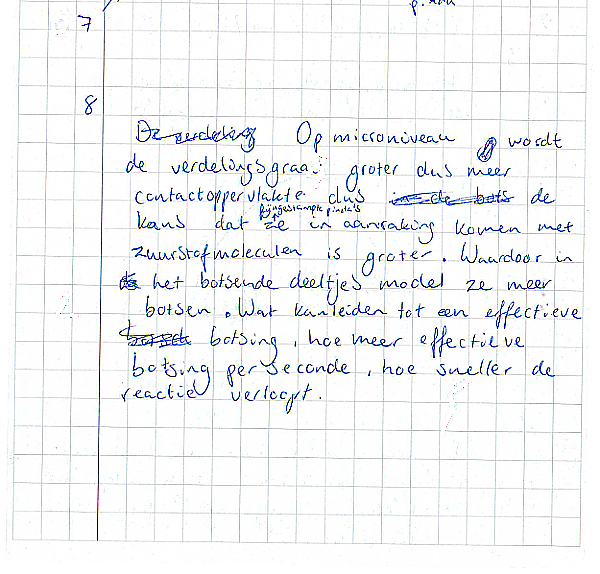 7
8
Op microniveau wordt
de verdelingsgraad groter dus meer
contactoppervlakte dus de
kans dat fijngestampte pinda's in aanraking komen met
zuurstofmoleculen is groter. Waardoor in
het botsende deeltjes model ze meer
botsen. Wat kan leiden tot een effectieve
botsing, hoe meer effectieve
botsing per seconde, hoe sneller de
reactie verloopt.